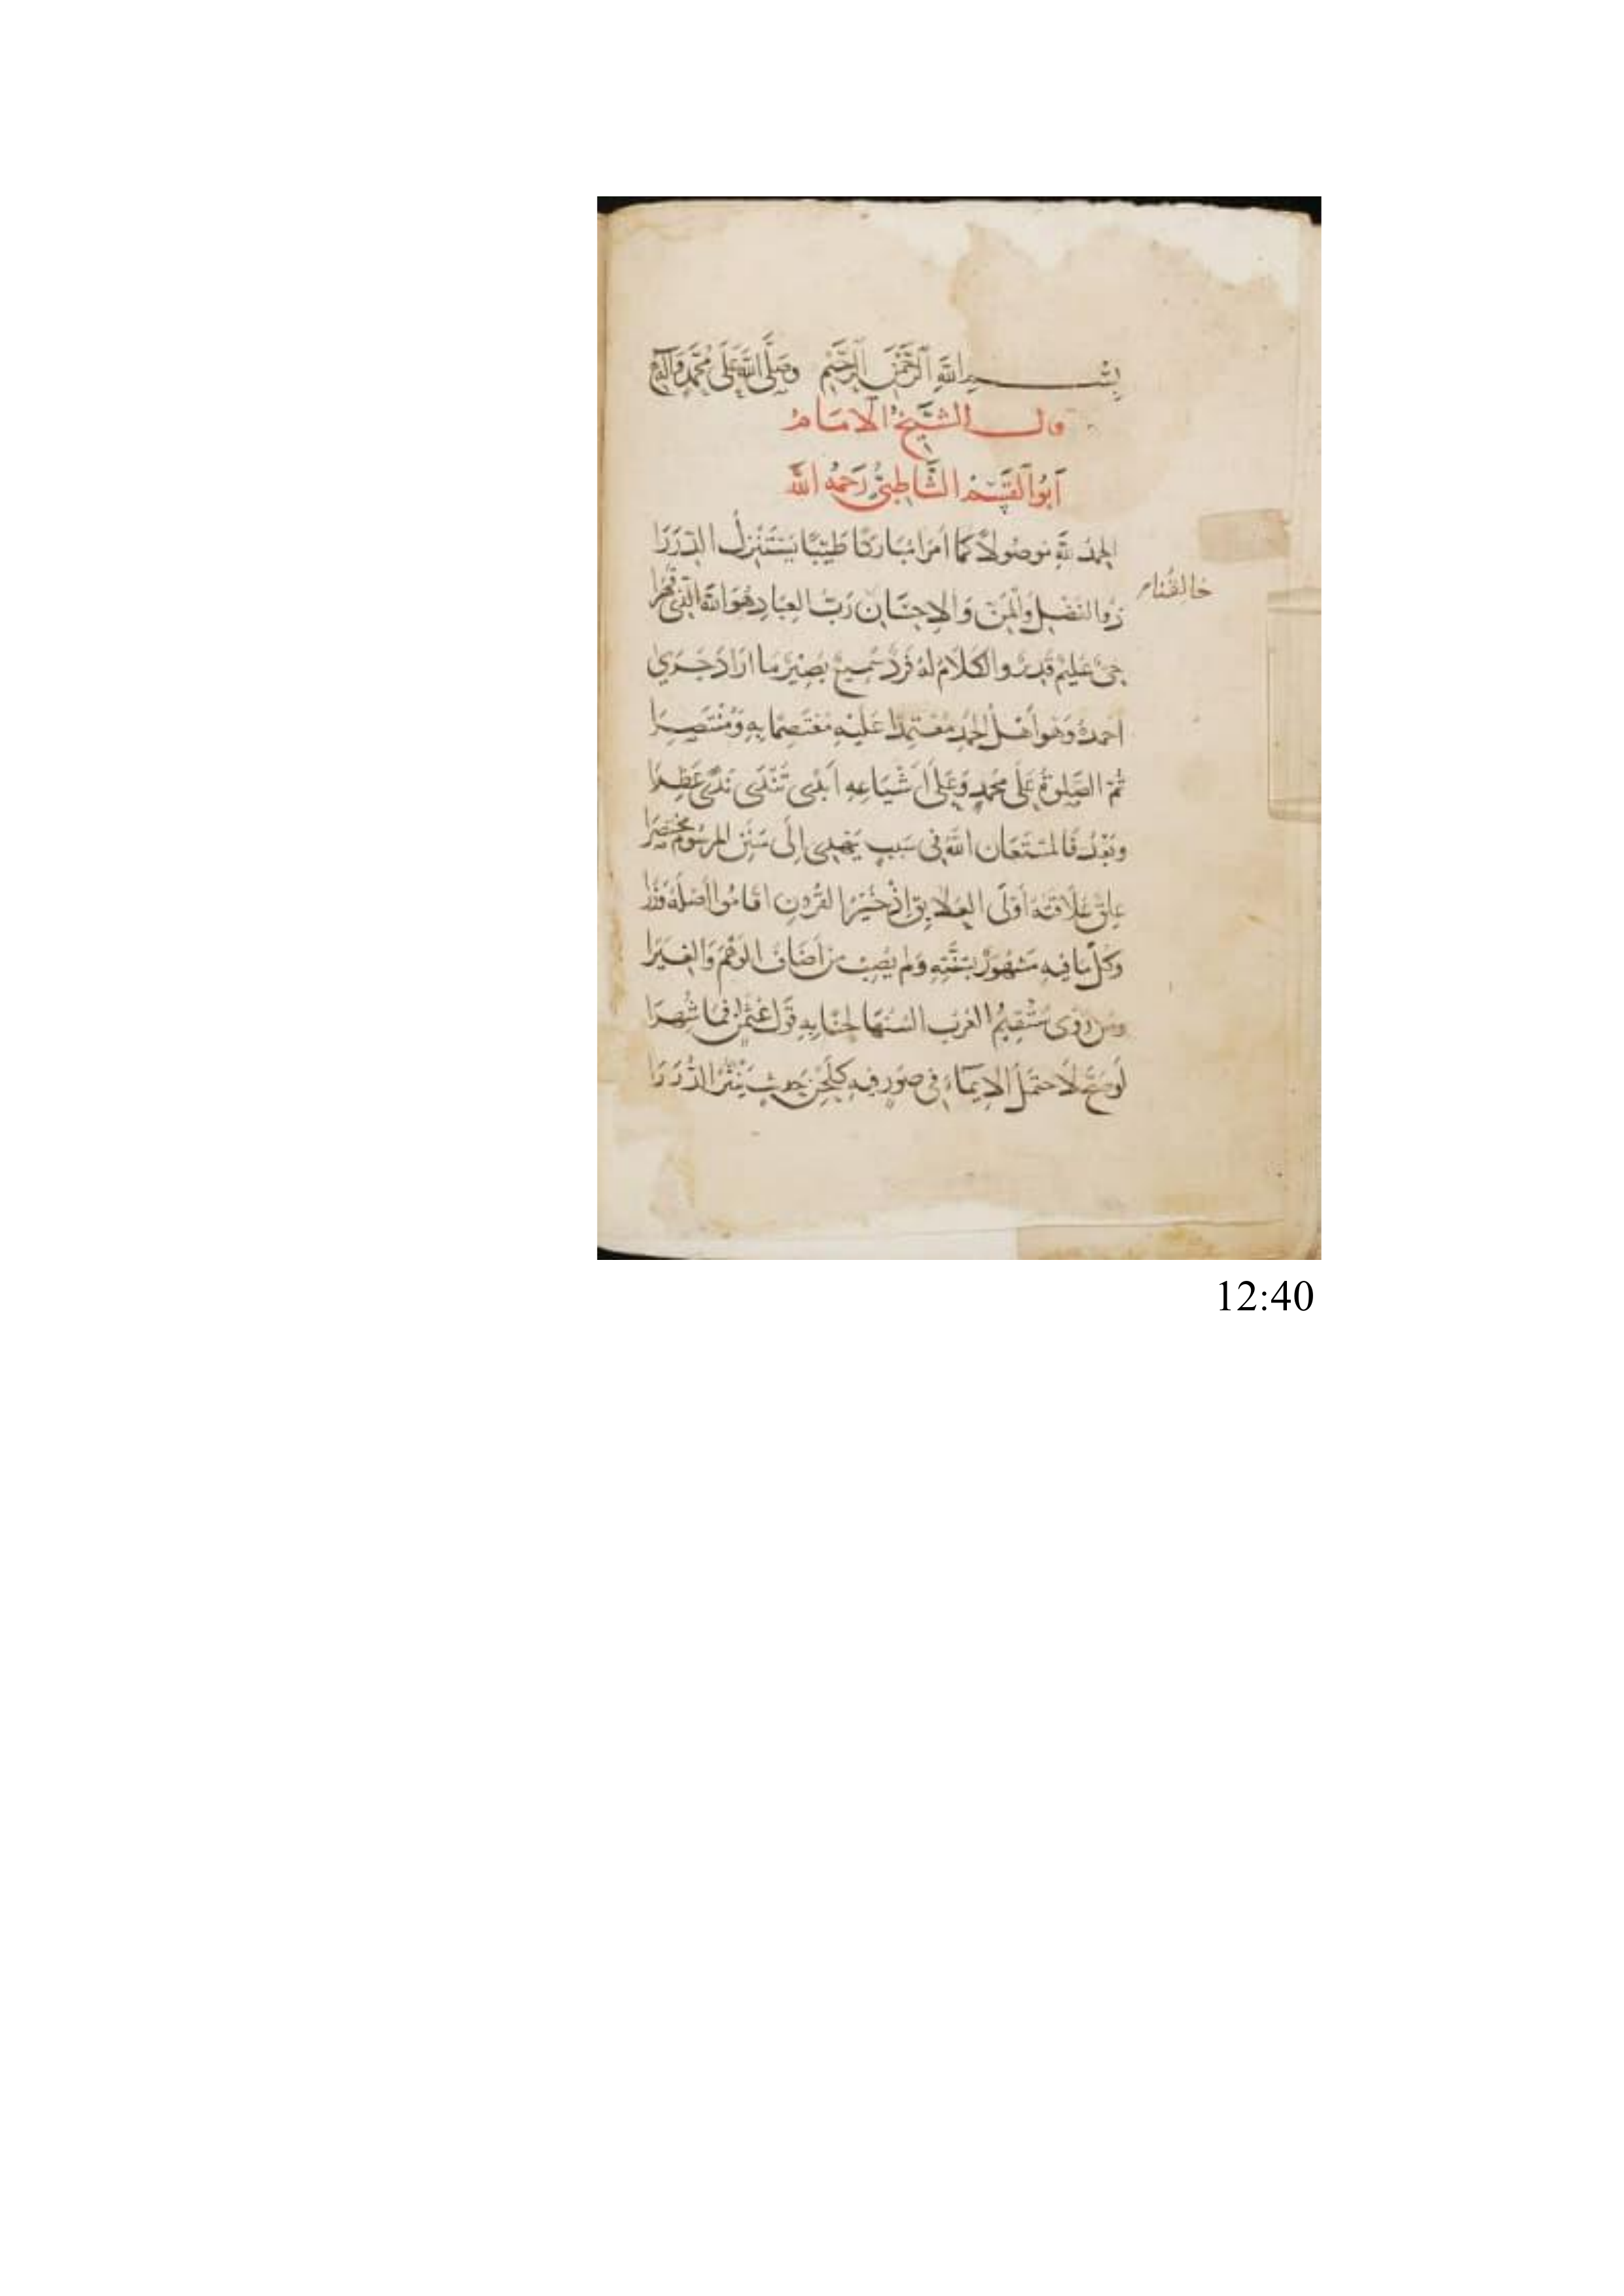 بِسْمِ اللَّهِ الرَّحْمَنِ الرَّحِيمِ وَصَلَّى اللَّهُ عَلَى مُحَمَّدٍ وَآلِهِ
قال الشَّيْخُ الامَامُ
أَبُو الْقَسِم الشَّاطِبيُّ رَحِمَهُ اللَّه
الحمدُ للهِ مَوصُولاً كمَا أمَرَا مُبَاركًا طَيِّبًا يَسْتَنْزِلُ الدِّرَرَا
ذُو الفَضْلِ وَالمَنِّ وَالإِحْسَانِ رَبُّ العِبَادِ هُوَ اللهُ الَّذِي قَهَرَا
حَيٌّ عَلِيمٌ قَدِيرٌ والكَلَامُ لَهُ فَرْدٌ سَمِيعٌ بَصِيرٌ مَا ارَادَ جَرَي
احمدُهُ وَهو أَهْلُ الحَمْدِ مُعْتَمِدًا عَلَيْهِ مُعْتَصِمًا بِهِ وَمُنْتَصِرَا
ثُمَّ الصَّلوةُ عَلَى مُحَمَّدٍ وَعَلَى أَشْيَاعِهِ أَبَدًى تَنْدَى نَدًى عَطِرَا
وبَعْدُ فَالمُسْتَعَان اللهُ فِي سَبَبٍ يَهْدِى إِلَى سَنَنِ المَرسُومِ مُخْتَصَرَا
عِلْقٌ عَلَاقَتُهُ أَوْلَى العَلَايِقِ إِذْ خَيْرُ القُرُونِ اقَامُوا أَصْلَهُ وَزَرَا
وَكُلُّ مَا فِيهِ مَشْهُورٌ بِسُنَّتِهِ وَلم يُصِبْ مَنْ أَضَافَ الوَهْمَ وَالغِيَرَا
ومن رَوَى سَتُقِيمُ العُرْبُ السُنُهَا لَحْنًا بِهِ قَوْلَ عُثْمَنٍ فَمَا شُهِرَا
لَوصَحَّ لَاحتَمَلَ الإِيمَاءَ فِي صُوَرٍ فِيهِ كَلَحْنِ حَدِيثٍ يَنْثُرُ الدُّرَرَا
12:40